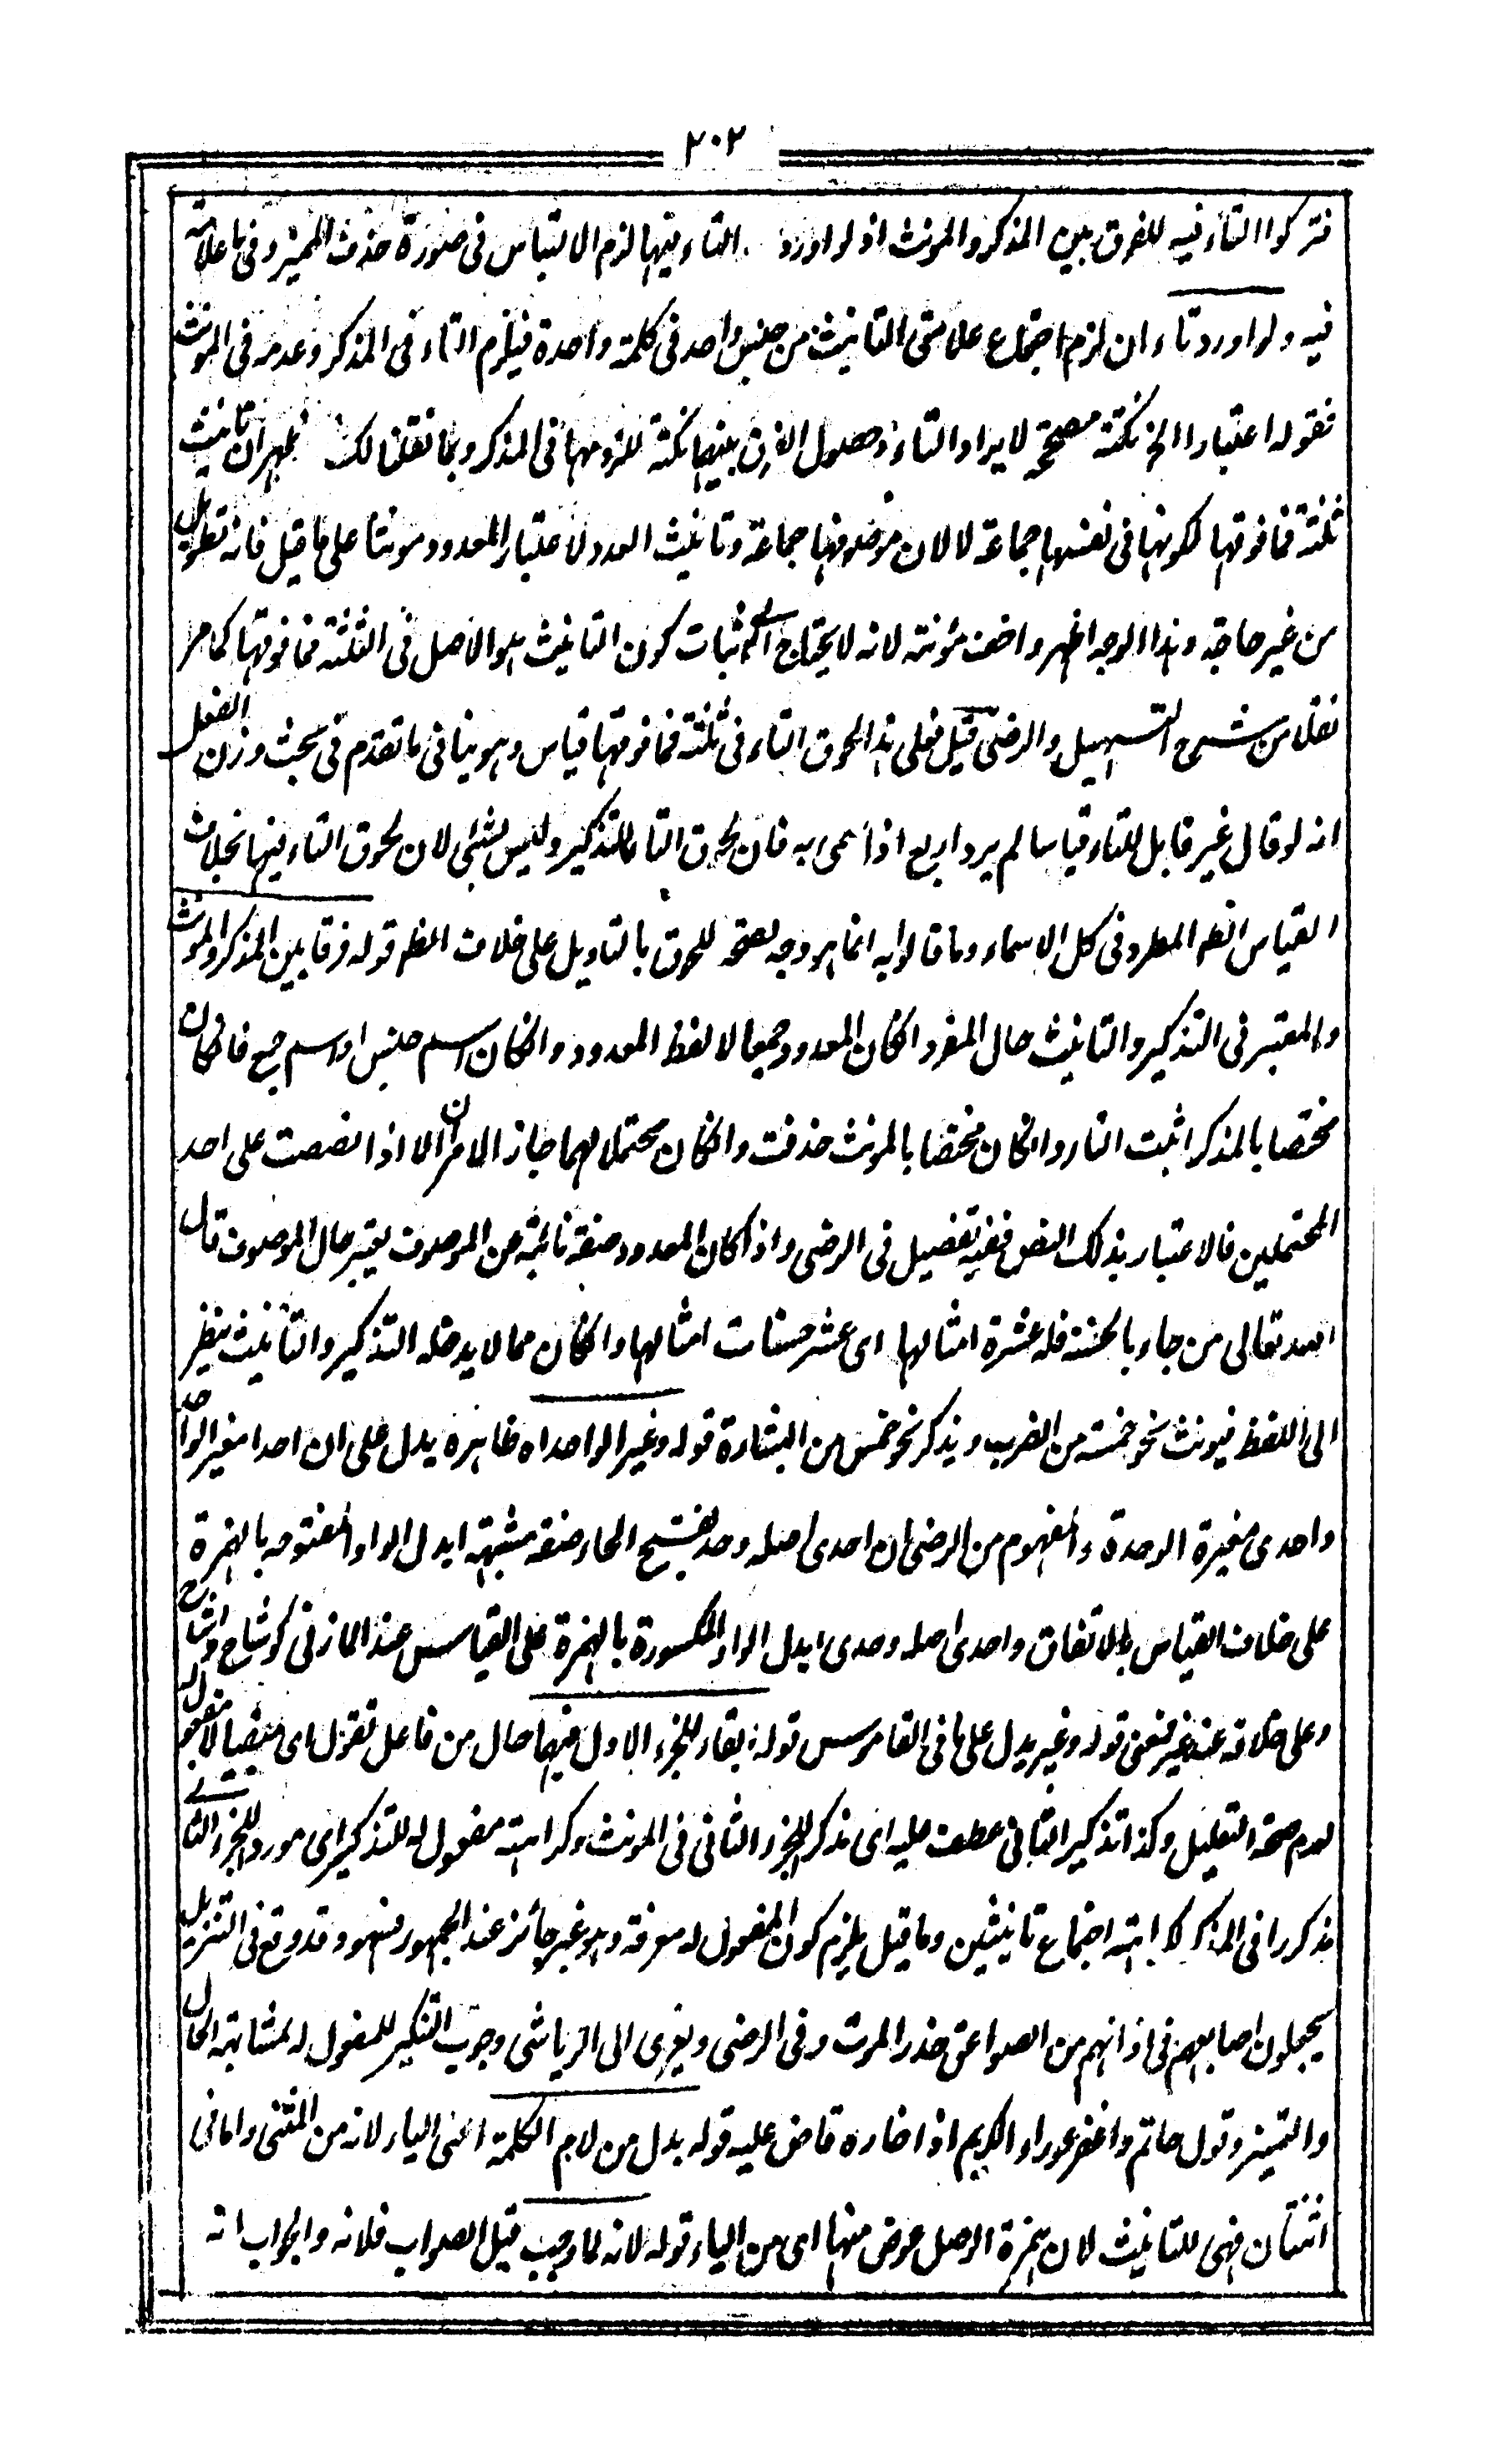 ٢٠٢
فتركوا التاء فيه للفرق بين المذكر والمونث اذ لو اورد التاء فيها لزم الالتباس فى صورة حذف المميز وفى ما علامته
فيه ولو اورد تاء ان لزم اجتماع علامتى التانيث من جنس واحد فى كلمة واحدة فيلزم التاء فى المذكر وعدمه فى المونث
فقوله اعتبارا الخ نكتة مصححة لايراد التاء وحصول الفرق بينهما نكتة للزومها فى المذكر وبما نقلنا لك ظهر ان تانيث
ثلثة فما فوقها لكونها فى نفسها جماعة لا لان موصوفها جماعة وتانيث العدد لاعتبار المعدود مونثا على ما قيل فانه تطويل
من غير حاجة وهذا الوجه اظهر واخف مؤنته لانه لا يحتاج الى اثبات كون التانيث هو الاصل فى الثلثة فما فوقها كما مر
نقلا من شرح التسهيل والرضى قيل فعلى هذا لحوق التاء فى ثلثة فما فوقها قياس وهو ينافى ما تقدم فى بحث وزن الفعل
انه لو قال غير قابل للتاء قياسا لم يرد اربع اذا سمى به فان لحوق التاء للتذكير وليس بشئ لان لحوق التاء فيها بخلاف
القياس المطرد فى كل الاسماء وما قالوا به انما هو وجه لصحة اللحوق بالتاويل على خلاف المظم قوله فرقا بين المذكر والمونث
والمعتبر فى التذكير والتانيث حال المفرد انكان المعدود جمعا لا لفظ المعدود وانكان اسم جنس او اسم جمع فانكان
مختصا بالمذكر اثبت التاء وانكان مختصا بالمونث حذفت وانكان محتملا لهما جاز الامران الا اذا نصصت على احد
المحتملين فالاعتبار بذلك النص ففيه تفصيل فى الرضى واذا كان المعدود صفة نائبة عن الموصوف يعتبر حال الموصوف قال
الله تعالى من جاء بالحسنة فله عشرة امثالها اى عشر حسنات امثالها وانكان مما لا يدخله التذكير والتأنيث ينظر
الى اللفظ فيونث نحو خمسة من الضرب ويذكر نحو خمس من البشارة قوله وغير الواحد اه ظاهره يدل على ان احدا مغير الواحد
واحدى مغيرة الوحدة والمفهوم من الرضى ان احدى اصله وحد بفتح الحاء صفة مشبهة ابدل الواو المفتوحه بالهمزة
على خلاف القياس بالاتفاق واحدى اصله وحدى ابدل الواو المكسورة بالهمزة على القياس عند المازنى كوشاح واشاح
وعلى خلافه عند غيره فمعنى قوله وغير يدل على ما فى القاموس قوله ابقاء للجزء الاول فيهما حال من فاعل تقول اى مبقيا لا مفعول له
لعدم صحة التعليل وكذا تذكير الثانى عطف عليه اى مذكر للجزء الثانى فى المونث وكراهته مفعول له للتذكير اى مورد للجزء الثانى
مذكرا فى المذكر كراهته اجتماع تانيثين وما قيل يلزم كون المفعول له معرفة وهو غير جائز عند الجمهور فسهو وقد وقع فى التنزيل
يجعلون اصابعهم فى اذانهم من الصواعق حذر الموت وفى الرضى ويعزى الى الرياشى وجوب التنكير للمفعول له لمشابهته الحال
والتميز وقول حاتم واغفر عوراء الكريم ادخاره قاض عليه قوله بدل من لام الكلمة اعنى الياء لانه من المثنى واما فى
اثنتان فهى للتانيث لان همزة الوصل عوض منها اى من الياء قوله لانه لما وجب قيل الصواب فلانه والجواب انه